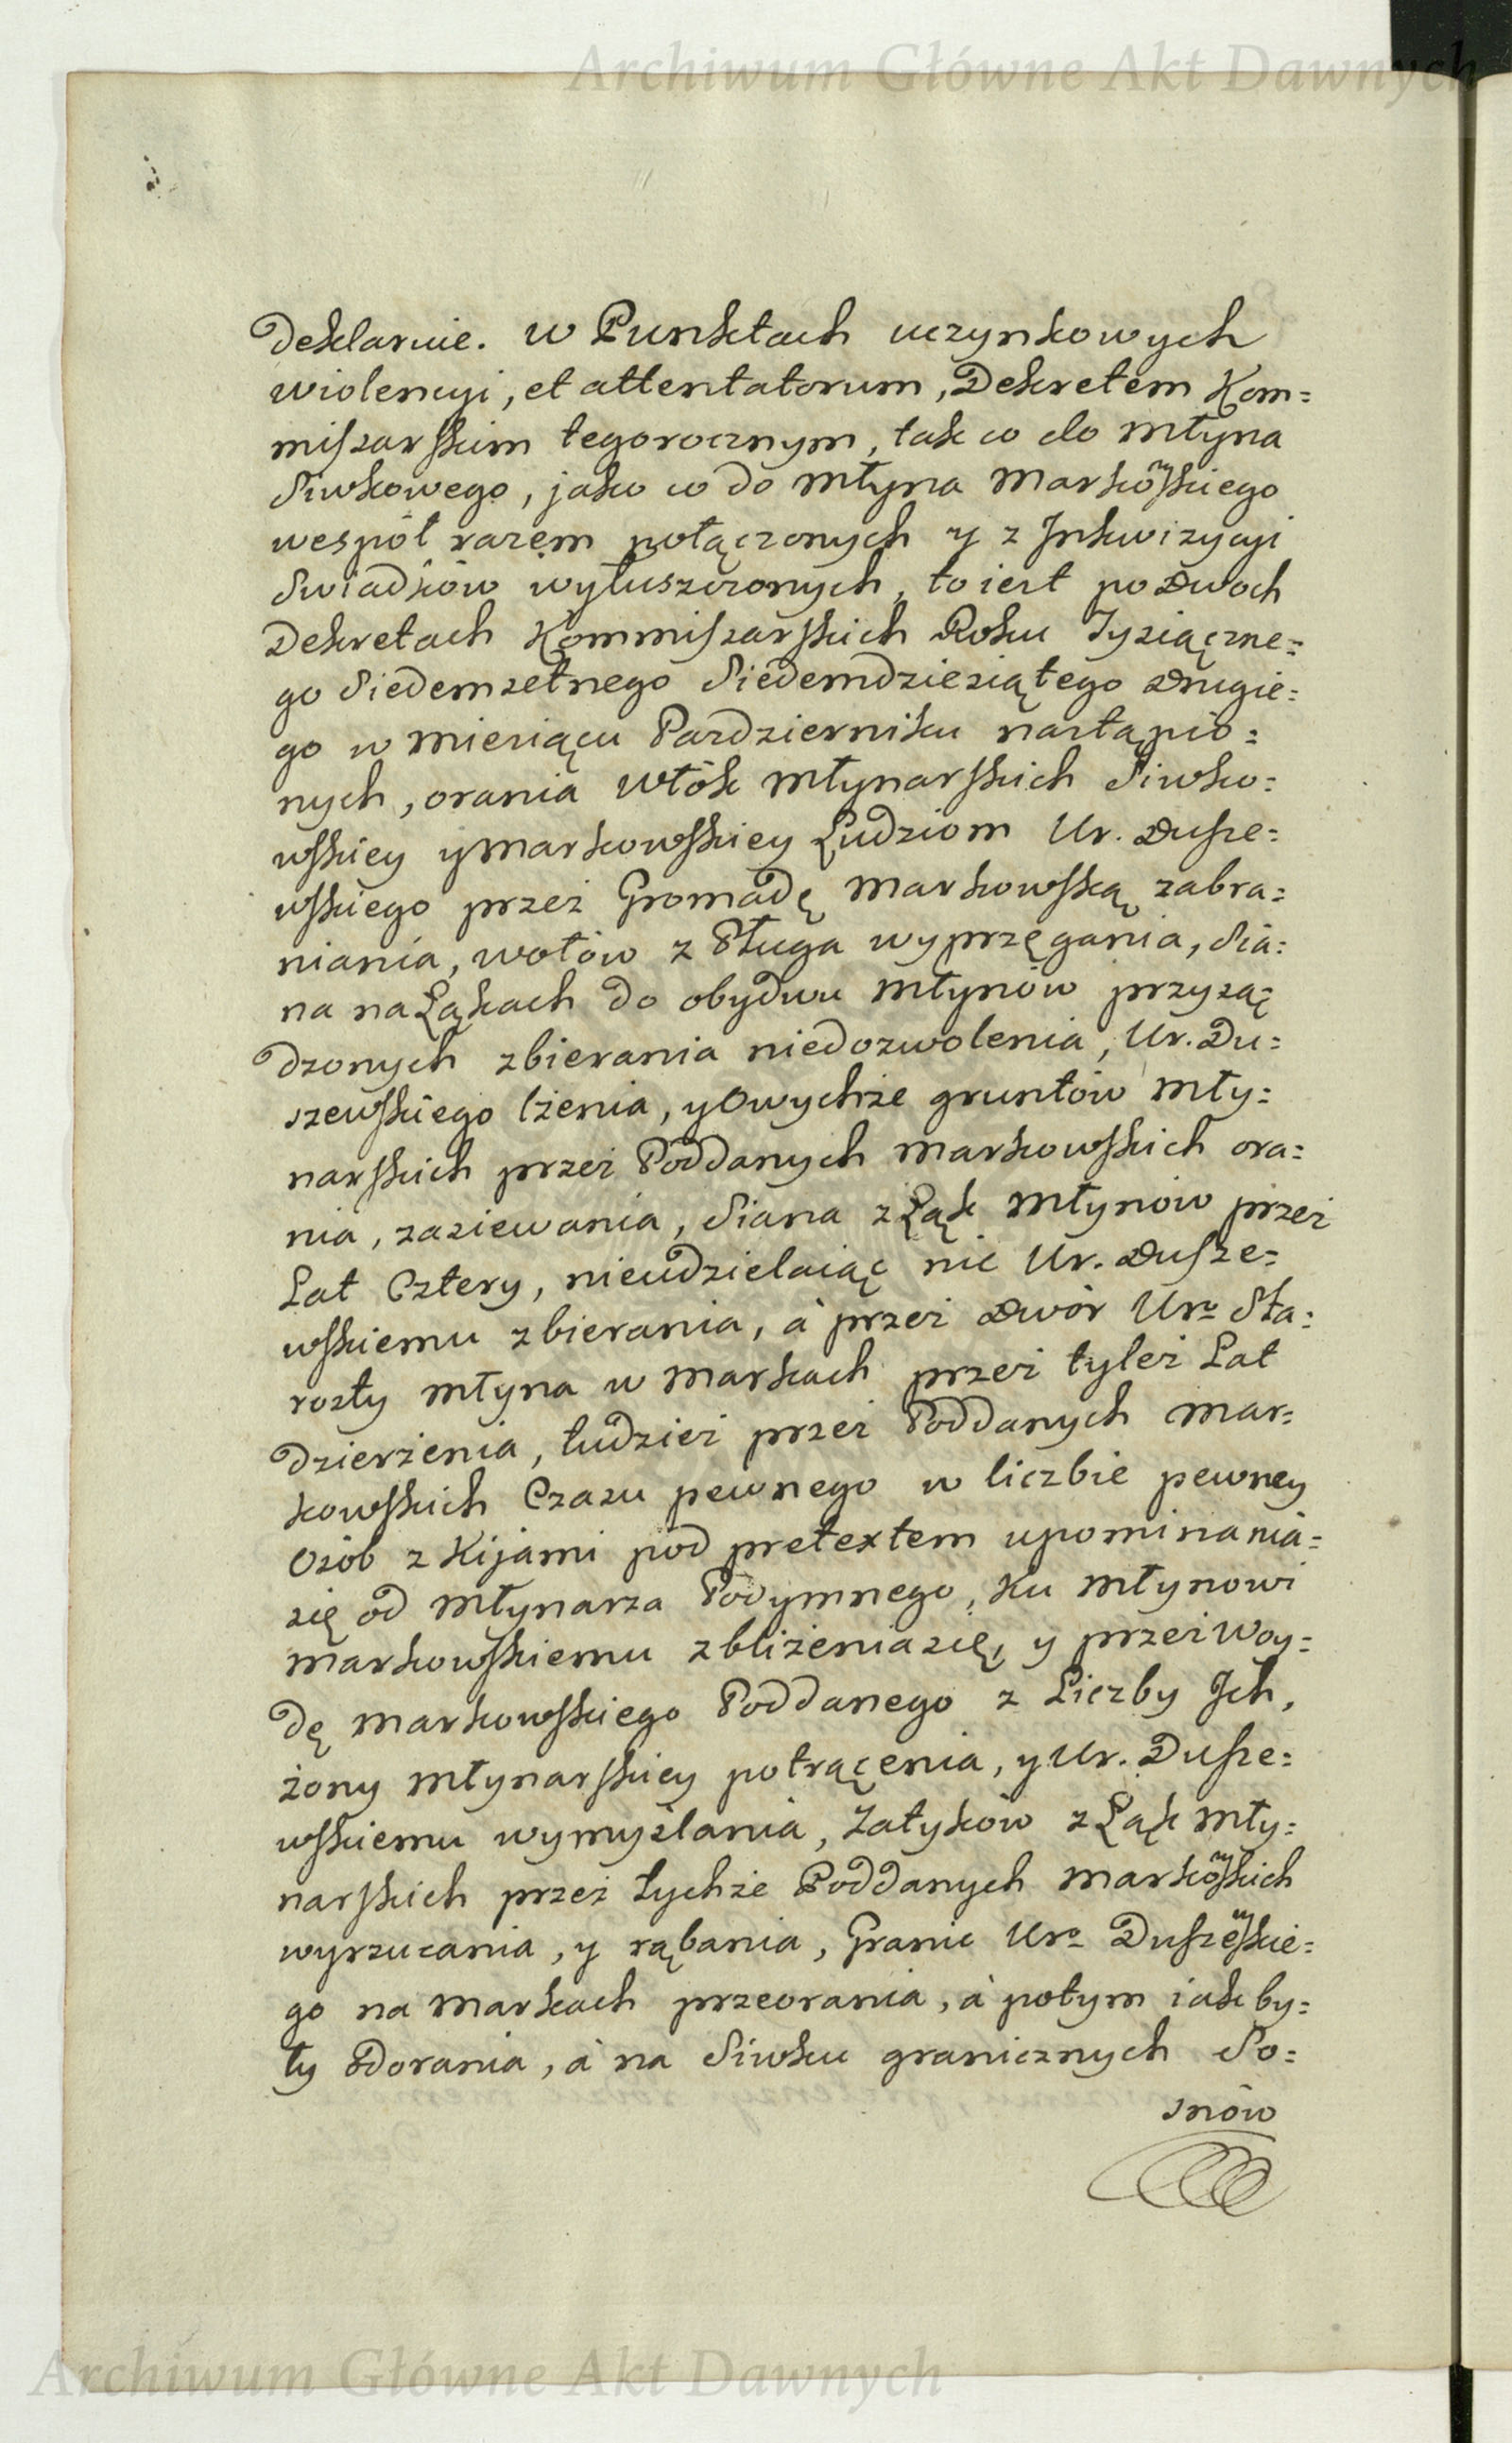 Archiwum Główne Akt Dawnych
Deklaruie. w Punktach uczynkowych
wiolencyi, et attentatorum, Dekretem Kom=
miszarskim tegorocznym, tak co do młyna
Siwkowego, jako co do młyna Markowskiego
wespół razem połączonych y z Jnkwizycyi
Swiadków wyłuszczonych, to iest po dwoch
Dekretach Kommiszarskich Roku Tysiączne=
go Siedemsetnego Siedemdziesiątego drugie=
go w miesiącu Pazdzierniku nastąpio=
nych, orania włók młynarskich Siwko=
wskiey y Markowskiey Ludziom Ur. Dusze=
wskiego przez Gromadę Markowską zabra=
niania, wołów z Pługa wyprzęgania, Sia=
na na Łąkach do obydwu młynów przysą=
dzonych zbierania niedozwolenia, Ur. Du=
szewskiego lżenia, y Owychże gruntów mły=
narskich przez Poddanych Markowskich ora=
nia, zasiewania, Siana z Łąk młynów przez
Lat Cztery, nieudzielaiąc nic Ur. Dusze=
wskiemu zbierania, à przez dwór Uro Sta=
rosty młyna w Markach przez tyleż Lat
dzierżenia, tudzież przez Poddanych Mar=
kowskich Czasu pewnego w liczbie pewney
Osób z Kijami pod pretextem upominania=
się od młynarza Podymnego, Ku młynowi
Markowskiemu zbliżenia się, y przez Woy=
dę Markowskiego Poddanego z Liczby Jch,
żony młynarskiey potrącenia, y Ur. Dusze=
wskiemu wymyślania, Zatyków z Łąk mły=
narskich przez tychże Poddanych Markowskich
wyrzucania, y rąbania, Granic Uro Duszewskie=
go na Markach przeorania, à potym iak by=
ły dorania, à na Siwku granicznych So=
snów
Archiwum Główne Akt Dawnych